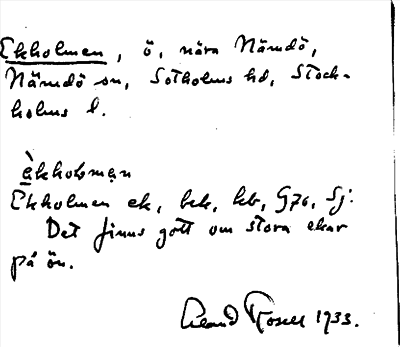 Ekholmen, ö, nära Nämdö,
Nämdö sn, Sotholms hd, Stock-
holms l.
èkholmen
Ekholmen ek, bek, kb, G76, Sj:
Det finns gott om stora ekar
på ön.
1933.